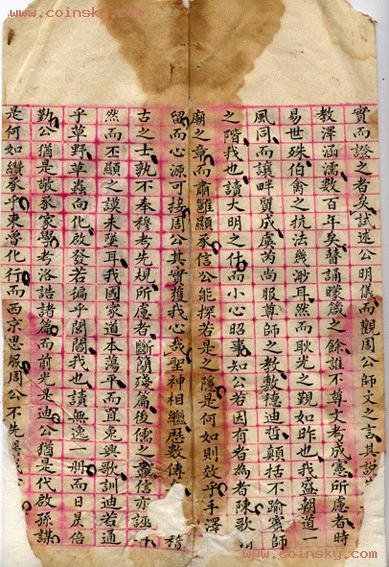 www.coinsky.com
www.coinsky.com
實而證之者矣試述公明儀而觀周公師文之言其說
教澤涵濡數百年矣瞽誦矇箴之餘誰不尊文考成憲所慮者時
易世殊伯禽之抗法幾渺耳然而耿光之覲如昨也我盛朝道一
風同而讓畔質成虞芮尚服尊師之教敷德迪哲顛括不踰師
之階我也讀大明之什而小心昭事知公若因有者為者陳歌
廟之章而肅雝顯承信公能探若是之隱是何如則效乎手澤
留而心源可接周公其實獲我心我聖神相繼歷數傳稽
古之士孰不奉穆考先規所慮者斷簡殘篇後儒之盡信亦誣
然而丕顯之謨未墜耳我國家道本蕩平而罝兔興歌訓迪若通
乎草野草蟲向化啟發若徧乎閭閻我也讀無逸一冊而日昃倍
勤公猶是敬承家學考洛誥諸篇而前光是迪公猶是代啟孫謀
是何如纘承乎東魯化行而西京思服周公不先
www.coinsky.com
www.coinsky.com